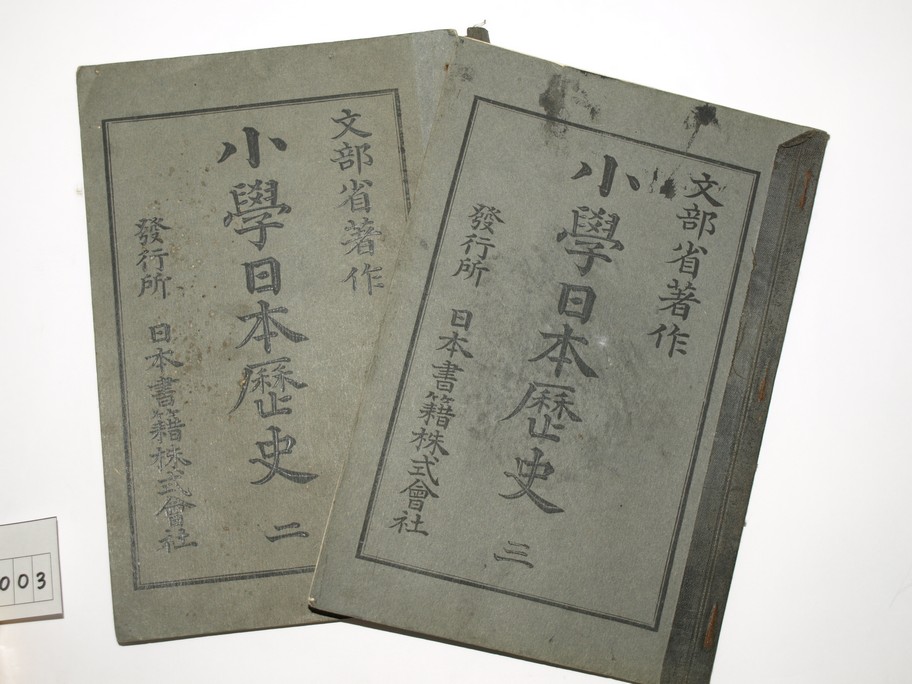 文部省著作
小學日本歷史 二
發行所 日本書籍株式會社
文部省著作
小學日本歷史 三
發行所 日本書籍株式會社
003